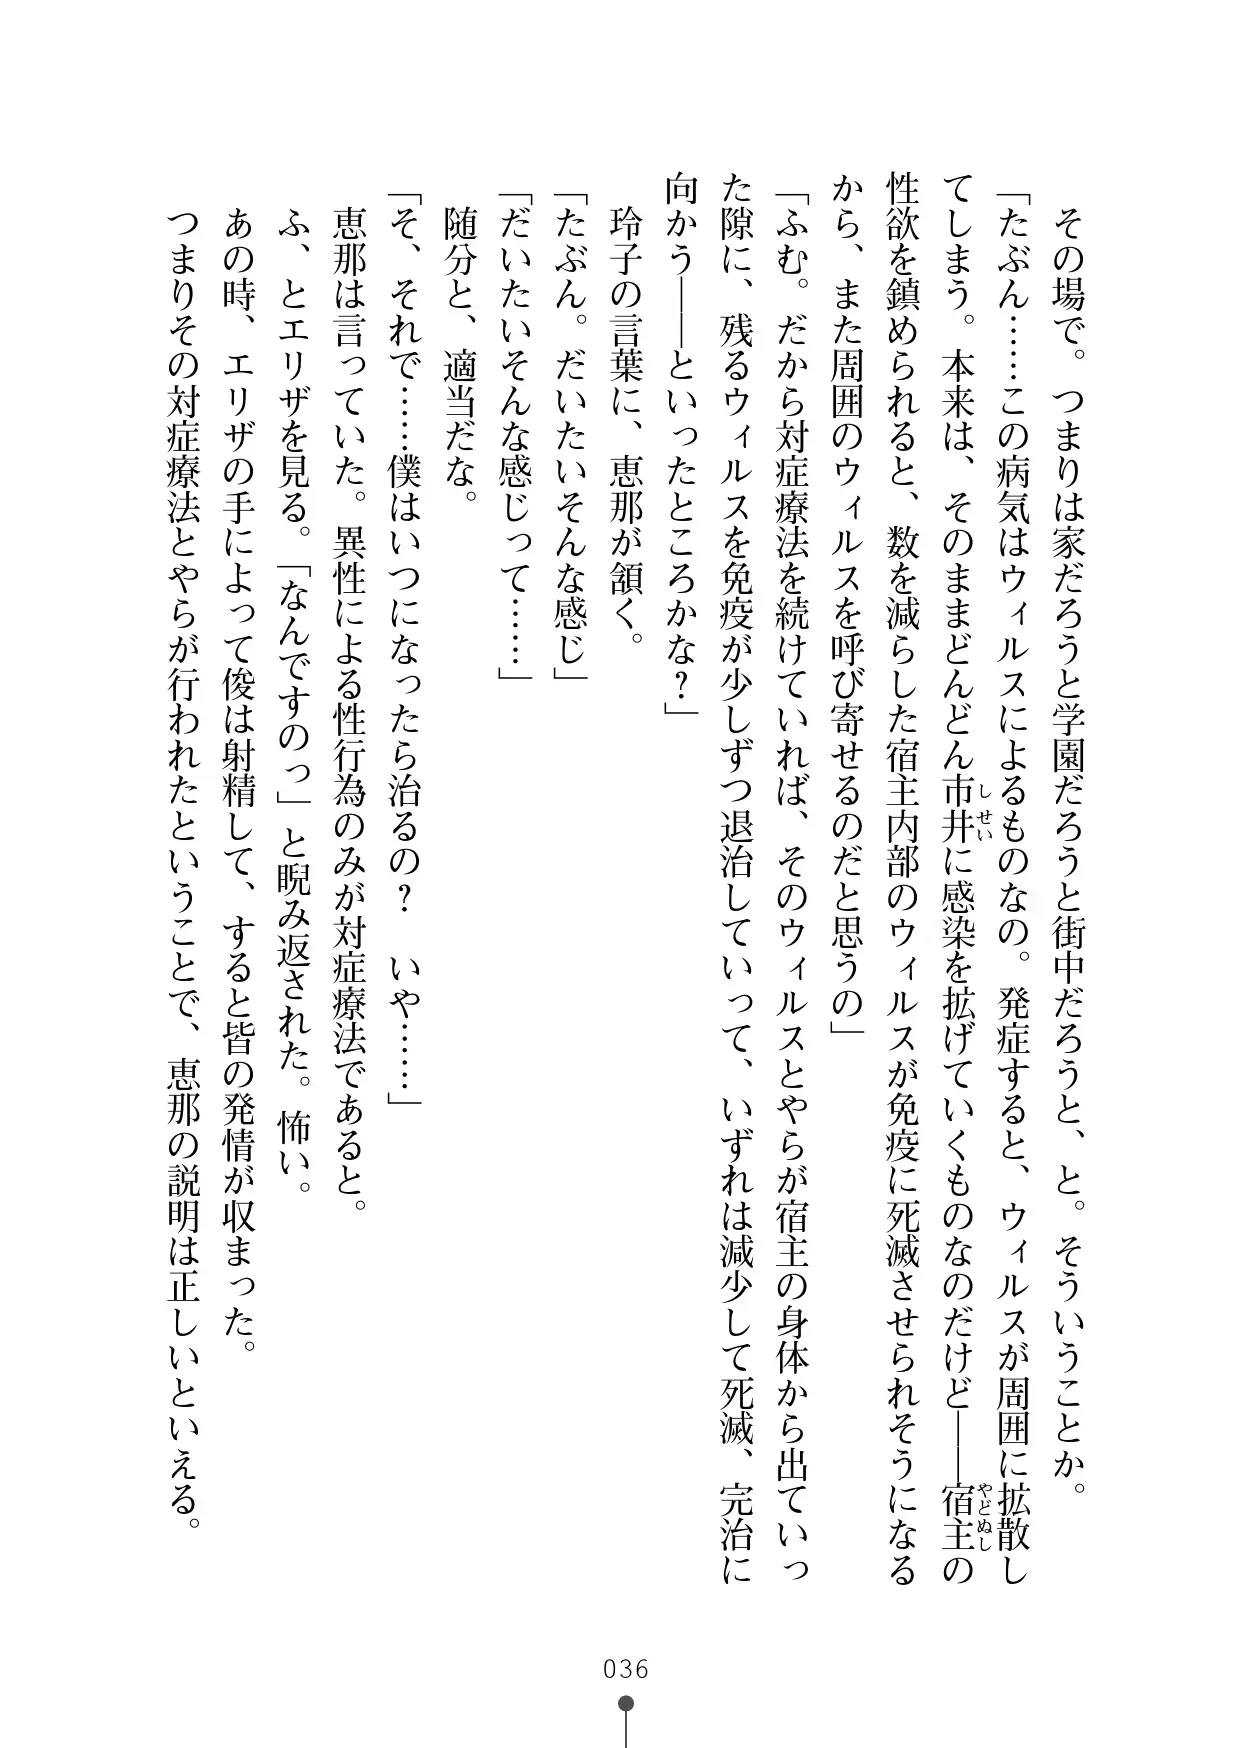 その場で。つまりは家だろうと学園だろうと街中だろうと、と。そういうことか。
「たぶん……この病気はウィルスによるものなの。発症すると、ウィルスが周囲に拡散し
てしまう。本来は、そのままどんどん市井に感染を拡げていくものなのだけど――宿主の
しせい
やどぬし
性欲を鎮められると、数を減らした宿主内部のウィルスが免疫に死滅させられそうになる
から、また周囲のウィルスを呼び寄せるのだと思うの」
「ふむ。だから対症療法を続けていれば、そのウィルスとやらが宿主の身体から出ていっ
た隙に、残るウィルスを免疫が少しずつ退治していって、いずれは減少して死滅、完治に
向かう――といったところかな?」
玲子の言葉に、恵那が頷く。
「たぶん。だいたいそんな感じ」
「だいたいそんな感じって……」
随分と、適当だな。
「そ、それで……僕はいつになったら治るの? いや……」
恵那は言っていた。異性による性行為のみが対症療法であると。
ふ、とエリザを見る。「なんですのっ」と睨み返された。怖い。
あの時、エリザの手によって俊は射精して、すると皆の発情が収まった。
つまりその対症療法とやらが行われたということで、恵那の説明は正しいといえる。
036